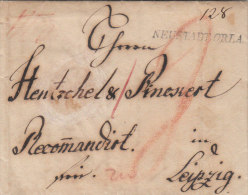 128
NEUSTADT ORLA.
Herrn
Hentschel & Pinckert
Recomandirt.
in
Leipzig.